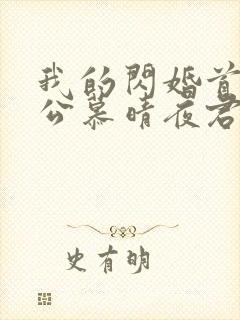 我的閃婚首
公慕晴夜君
史有明